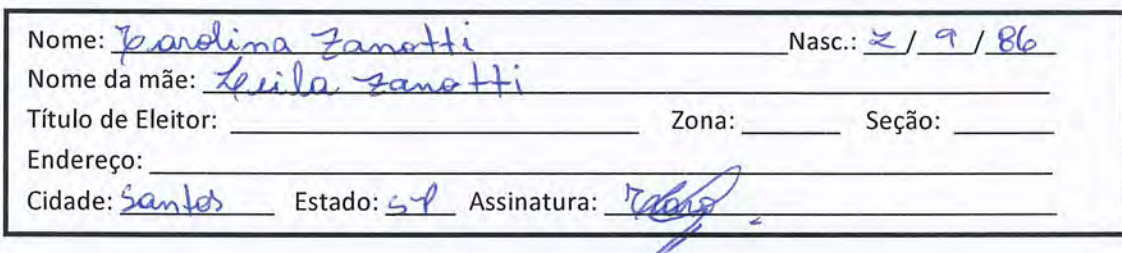 Nome: Carolina Zanotti Nasc.: 2 / 9 / 86
Nome da mãe: Leila Zanotti
Título de Eleitor: Zona: Seção:
Endereço:
Cidade: Santos Estado: SP Assinatura: